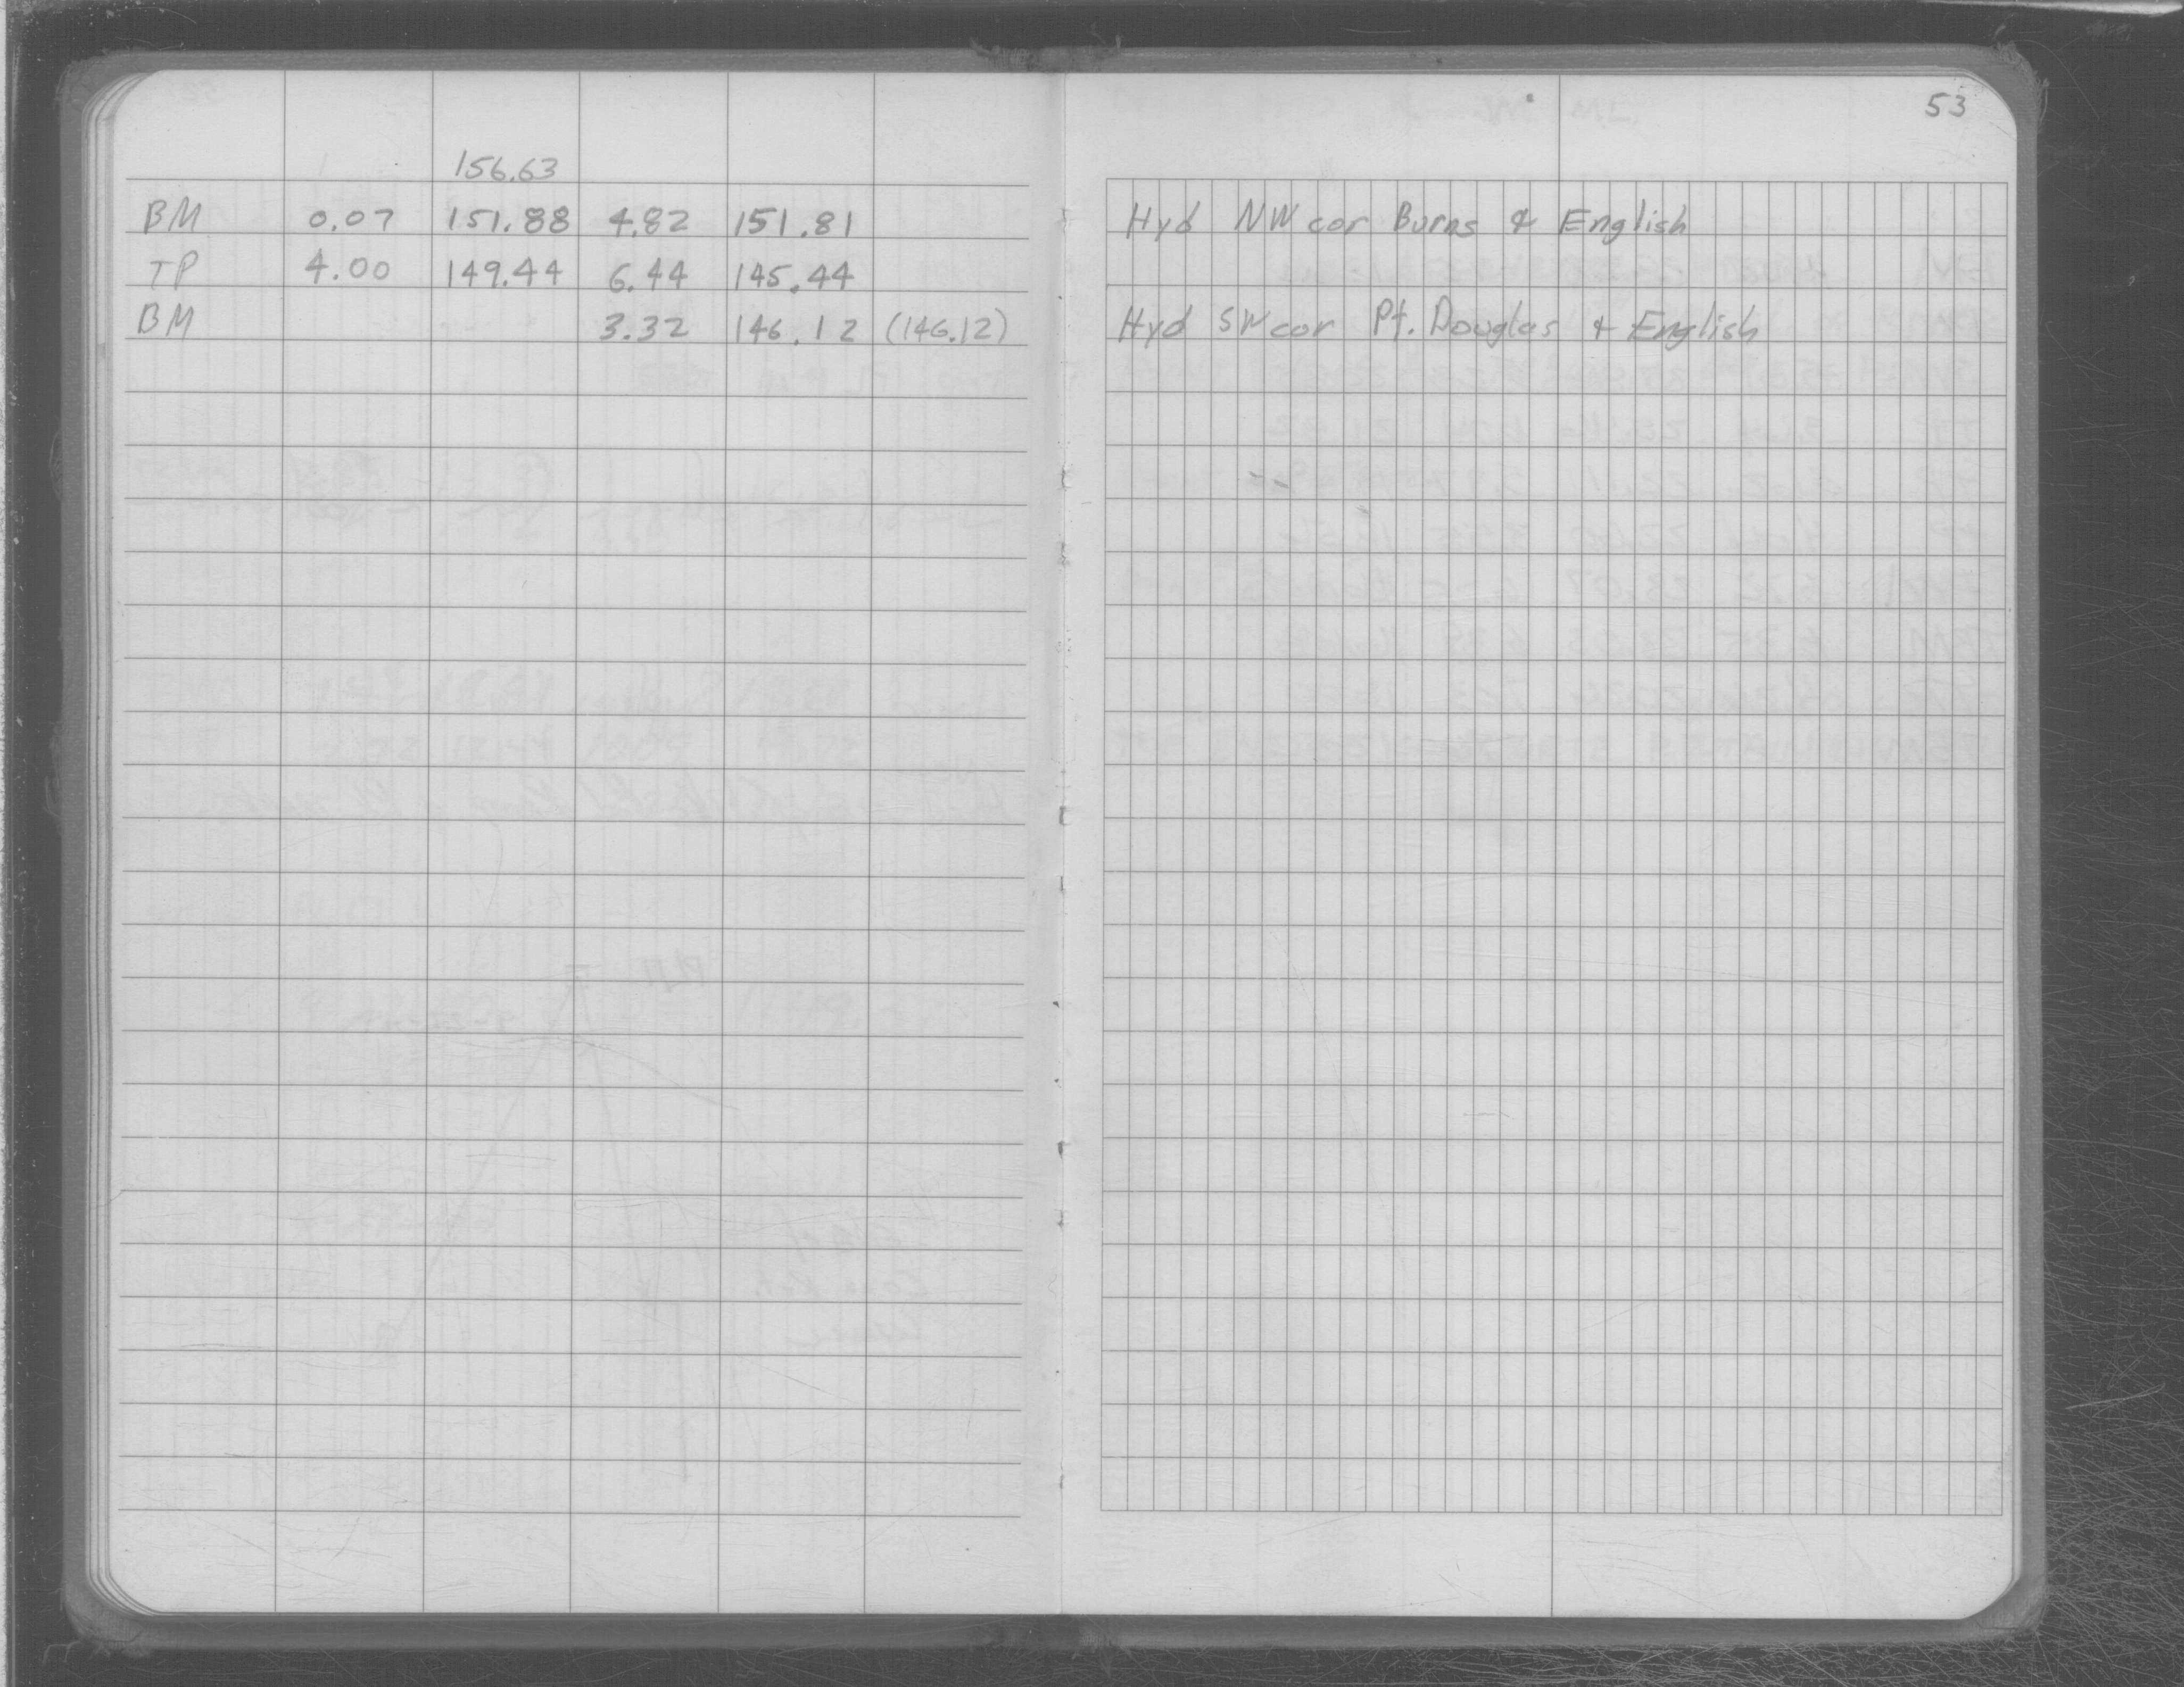 53
156.63
BM 0.07 151.88 4.82 151.81 Hyd NW cor Burns & English
TP 4.00 149.44 6.44 145.44
BM 3.32 146.12 (146.12) Hyd SW cor Pt. Douglas & English